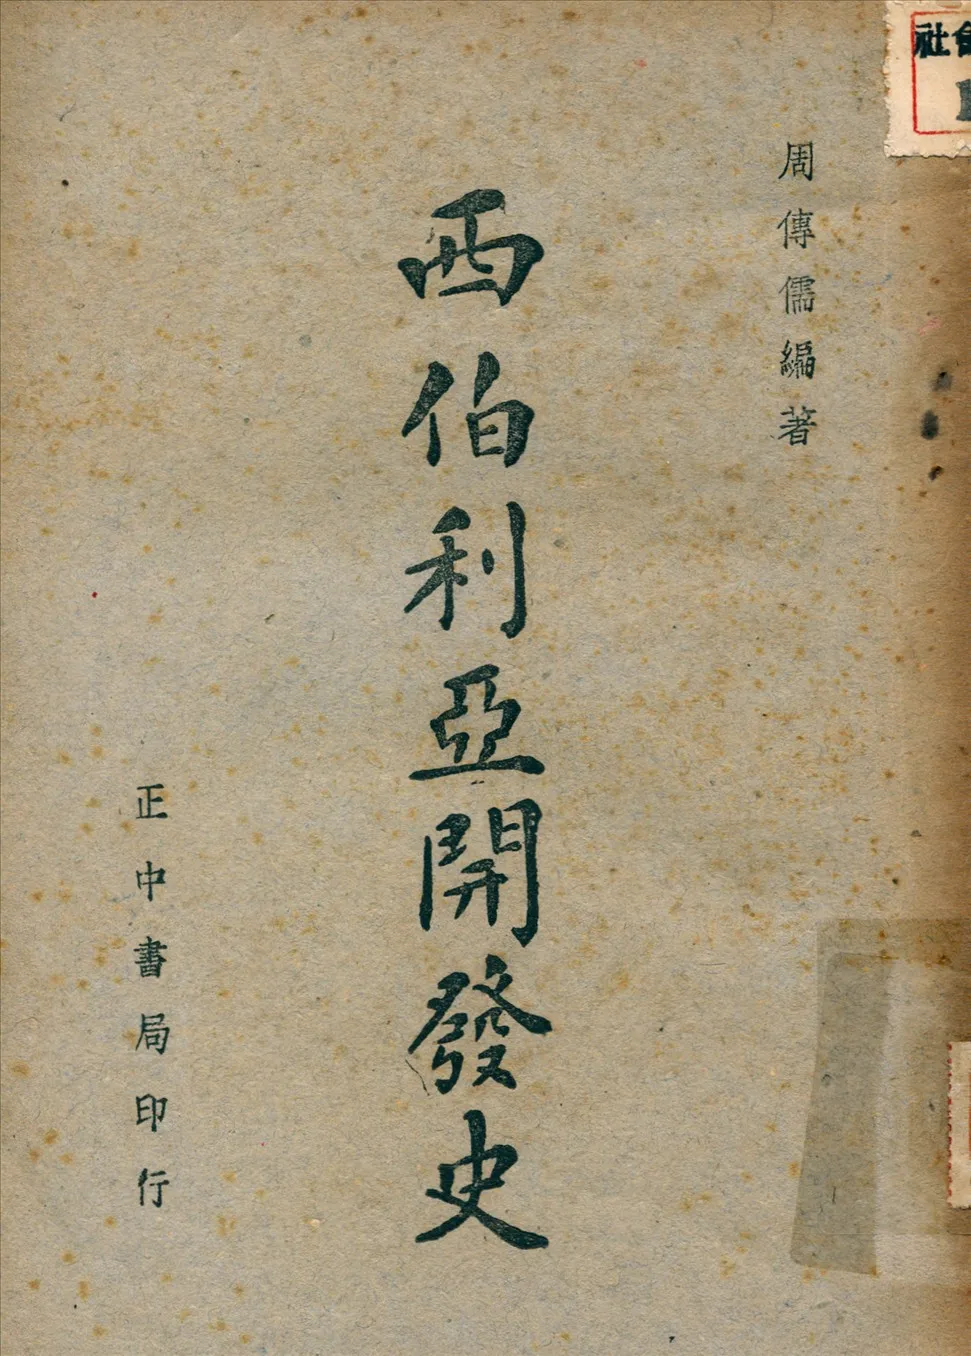 周傳儒編著
西伯利亞開發史
正中書局印行
社會